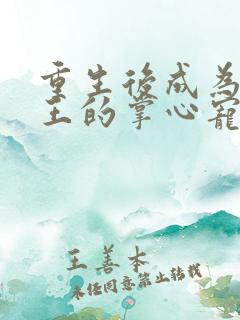 重生後成為
王的掌心寵
王善本
未經同意禁止轉載